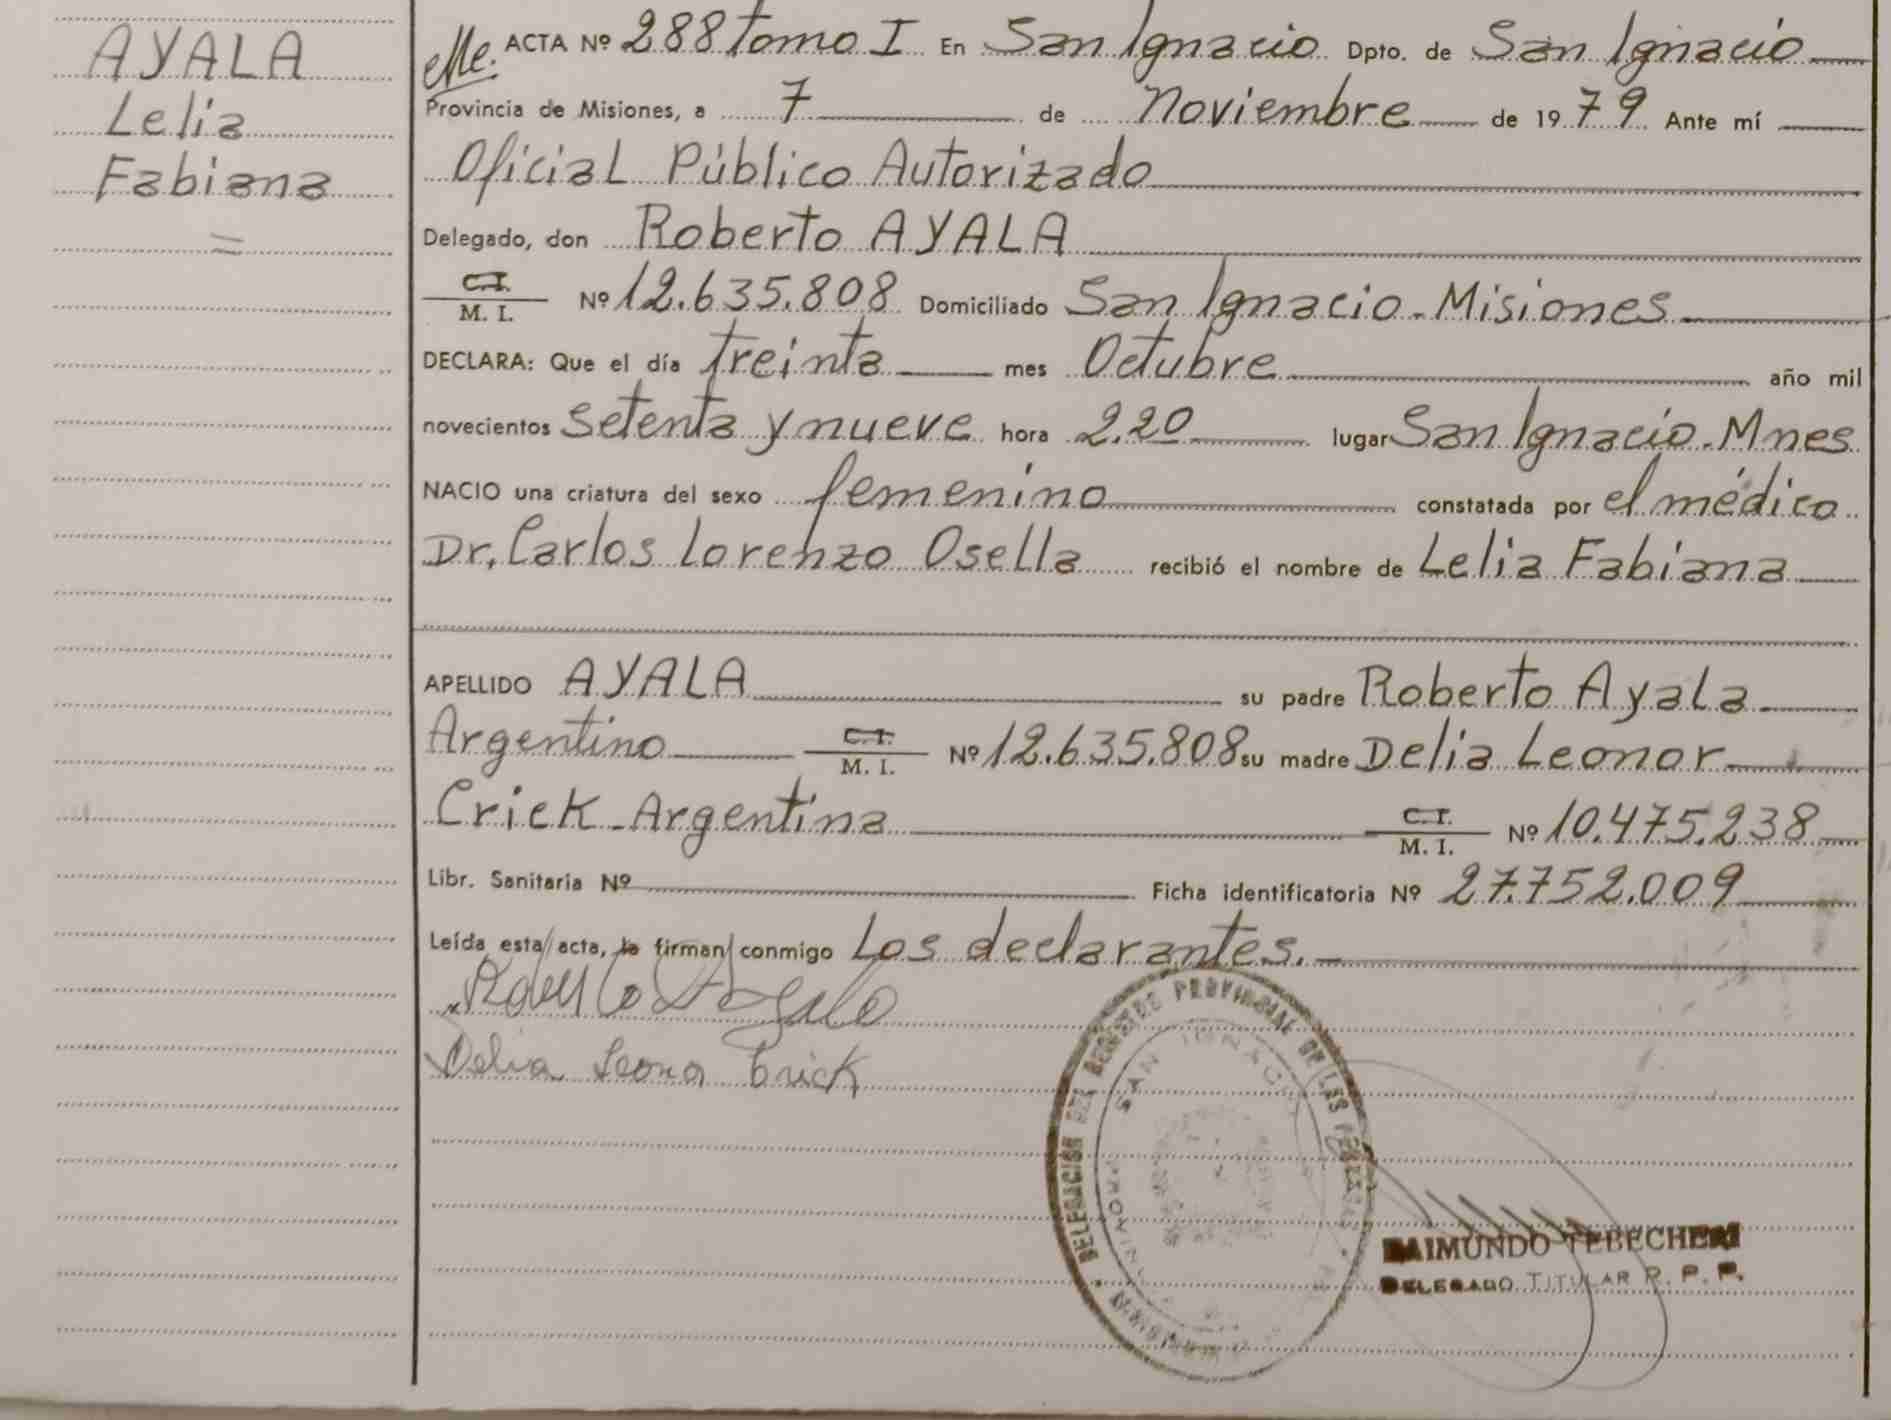 AYALA
Lelia
Fabiana
=
ACTA Nº 288 Tomo I En San Ignacio Dpto. de San Ignacio
Provincia de Misiones, a 7 de Noviembre de 1979 Ante mí
Oficial Público Autorizado
Delegado, don Roberto AYALA
C.I.
M. I. Nº 12.635.808 Domiciliado San Ignacio - Misiones
DECLARA: Que el día treinta mes Octubre año mil
novecientos setenta y nueve hora 2.20 lugar San Ignacio - Mnes
NACIO una criatura del sexo femenino constatada por el médico
Dr. Carlos Lorenzo Osella recibió el nombre de Lelia Fabiana
APELLIDO AYALA su padre Roberto Ayala
Argentino C.I. M. I. Nº 12.635.808 su madre Delia Leonor
Crick - Argentina C.I. M. I. Nº 10.475.238
Libr. Sanitaria Nº Ficha identificatoria Nº 27.752.009
Leída esta acta, la firman conmigo Los declarantes.-
Roberto Ayala
Delia Leonor Crick
DELEGACION DEL REGISTRO PROVINCIAL DE LAS PERSONAS
SAN IGNACIO
RAIMUNDO TEBECHERI
DELEGADO TITULAR R. P. P.